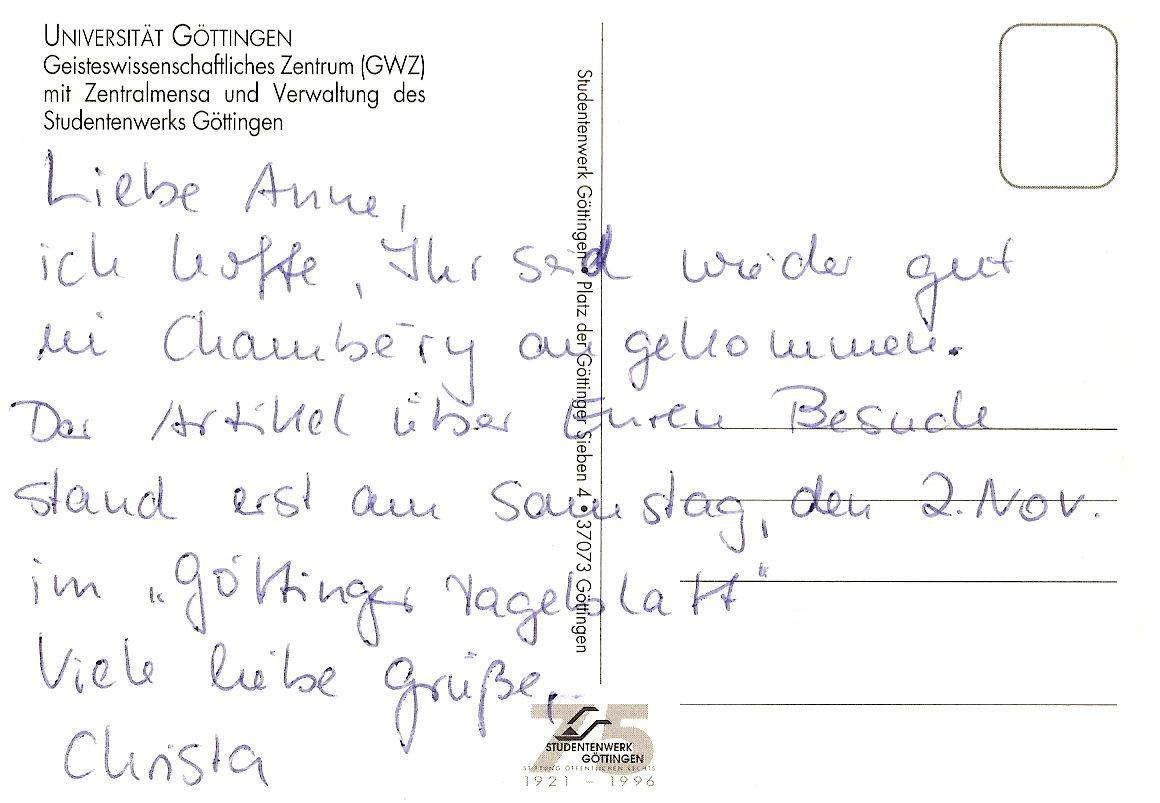 UNIVERSITÄT GÖTTINGEN
Geisteswissenschaftliches Zentrum (GWZ)
mit Zentralmensa und Verwaltung des
Studentenwerks Göttingen
Liebe Anne,
ich hoffe, Ihr seid wieder gut
in Chambéry angekommen.
Der Artikel über Euren Besuch
stand erst am Samstag, den 2. Nov.
im „Göttinger Tageblatt"
Viele liebe Grüße,
Christa
Studentenwerk Göttingen • Platz der Göttinger Sieben 4 • 37073 Göttingen
75
STUDENTENWERK
GÖTTINGEN
STIFTUNG ÖFFENTLICHEN RECHTS
1921 – 1996